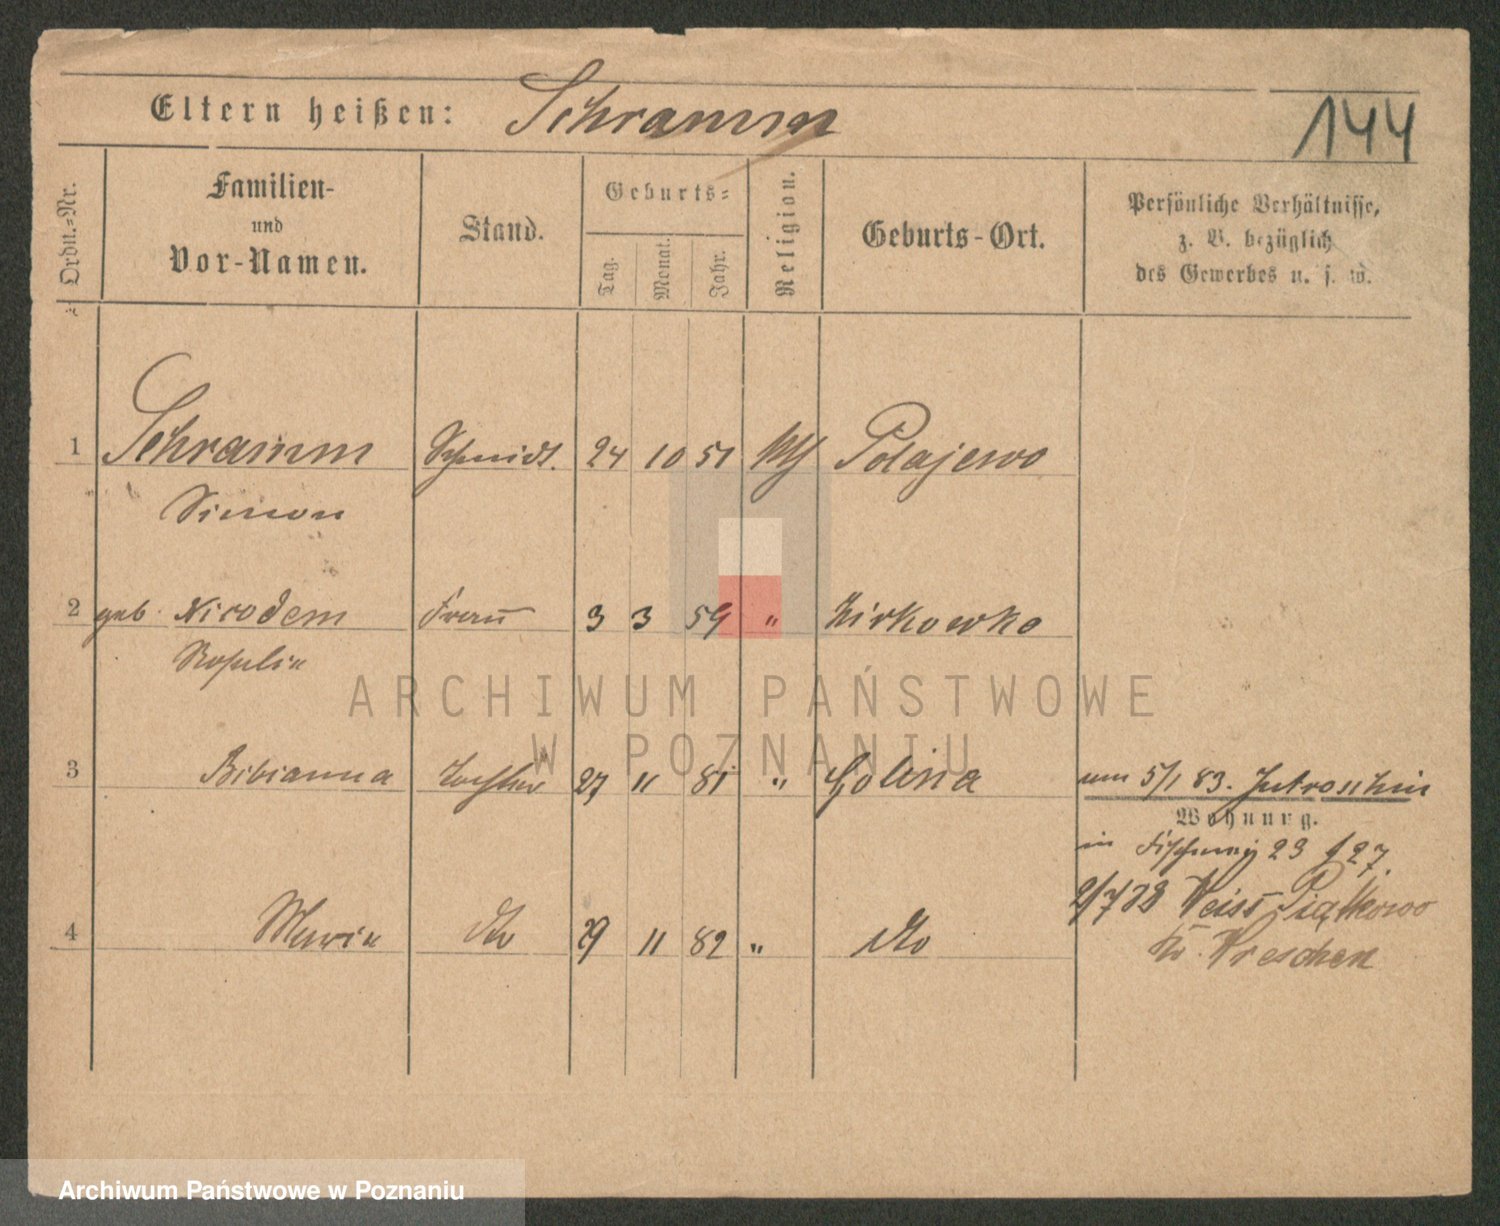 Eltern heißen: Schramm
144
Ordn.=Nr.
Familien-
und
Vor-Namen.
Stand.
Geburts=
Tag.
Monat.
Jahr.
Religion.
Geburts-Ort.
Persönliche Verhältnisse,
z. B. bezüglich
des Gewerbes u. s. w.
1 Schramm Schmidt. 24 10 51 kth Polajewo
Simon
2 geb. Nicodem Frau 3 3 59 " Kirkowko
Rosalie
3 Bibianna Tochter 27 11 81 " Golina
um 5/1 83. Jutroschin
Wohnung.
in 23 / 27.
4 Marie dto 29 11 82 " dto
2/7 88 Weiss Piątkowo
Kr. Wreschen
ARCHIWUM PAŃSTWOWE
W POZNANIU
Archiwum Państwowe w Poznaniu